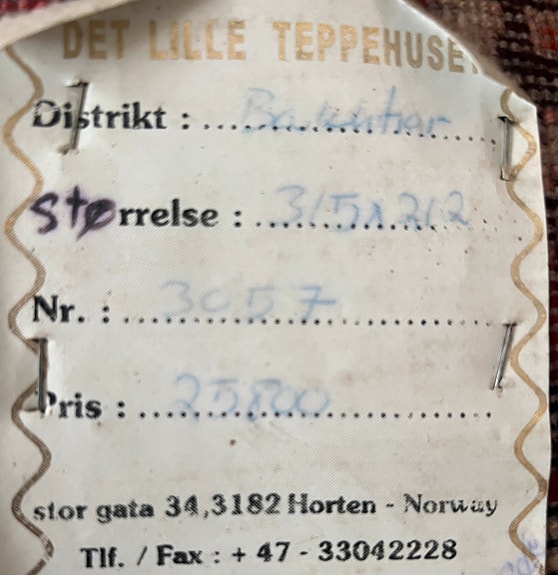 DET LILLE TEPPEHUSE
Distrikt : Bakhtiar
Størrelse : 315x212
Nr. : 3057
Pris : 25800
stor gata 34,3182 Horten - Norway
Tlf. / Fax : + 47 - 33042228